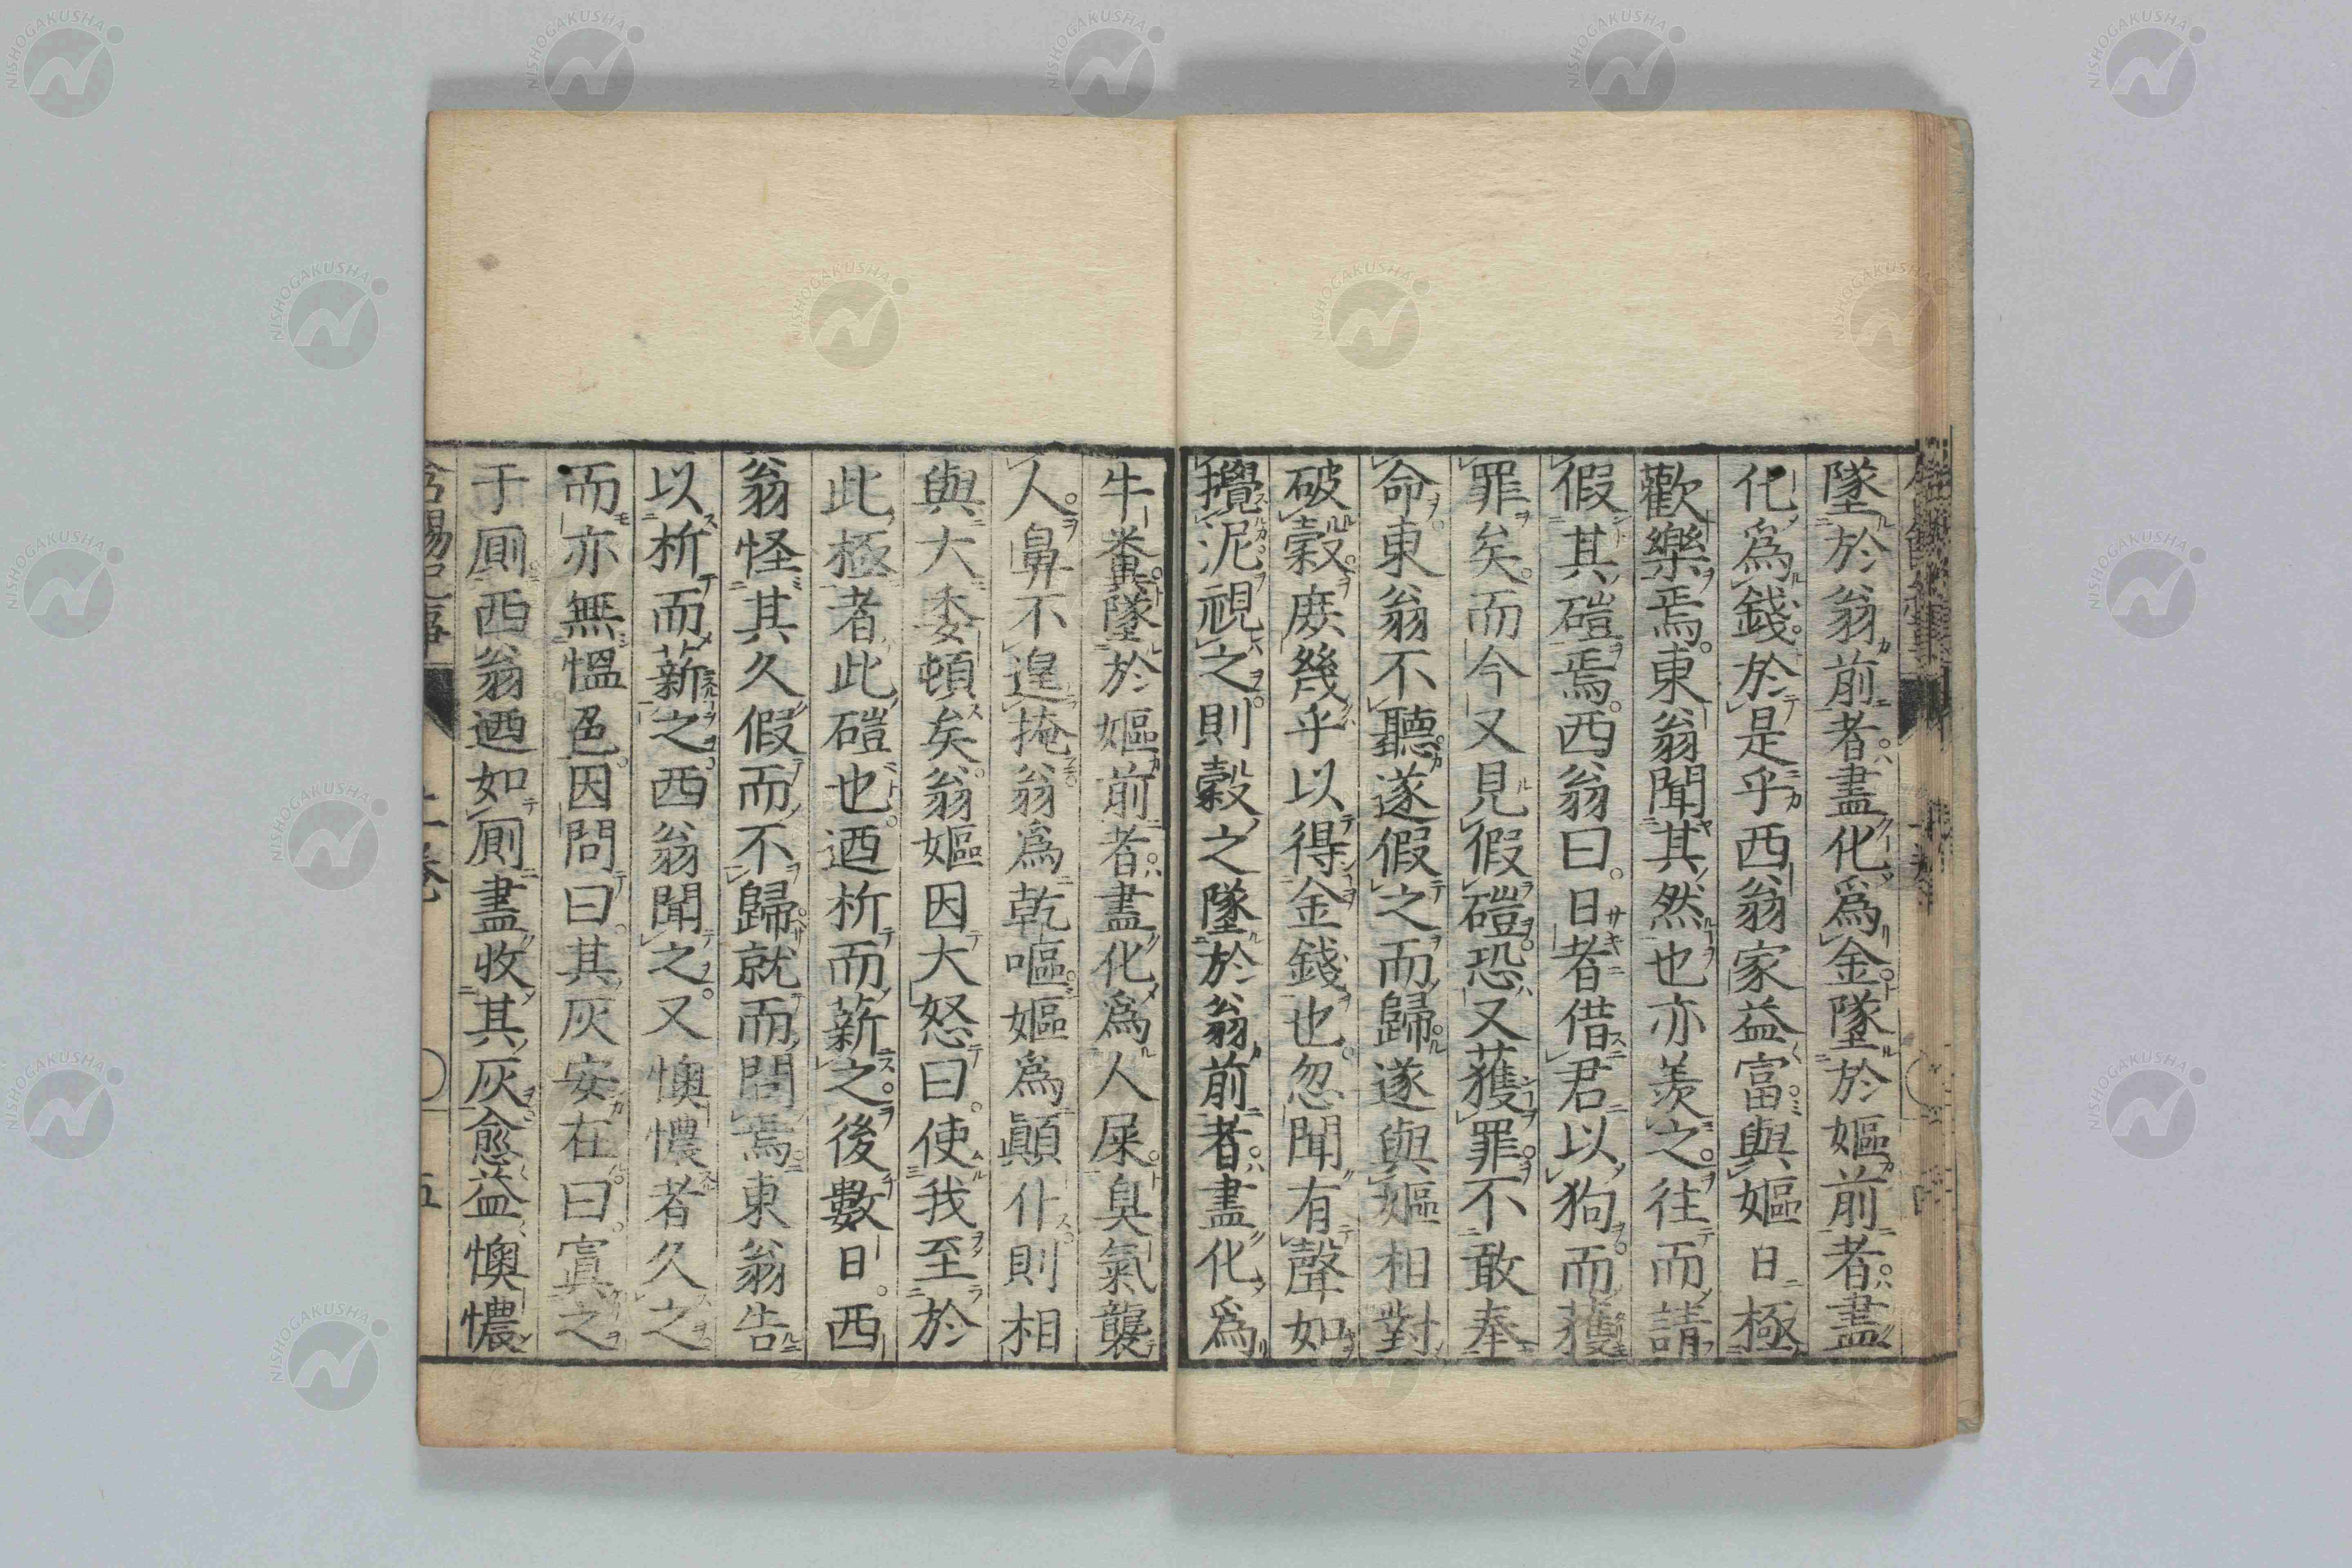 墜於翁前者盡化爲金墜於嫗前者盡
化爲錢於是乎西翁家益富與嫗日極
歡樂焉東翁聞其然也亦羨之往而請
假其磑焉西翁曰日者借君以狗而獲
罪矣而今又見假磑恐又獲罪不敢奉
命東翁不聽遂假之而歸遂與嫗相對
破穀庻幾乎以得金錢也忽聞有聲如
攪泥視之則穀之墜於翁前者盡化爲
牛糞墜於嫗前者盡化爲人屎臭氣襲
人鼻不遑掩翁爲乾嘔嫗爲顚仆則相
與大委頓矣翁嫗因大怒曰使我至於
此極者此磑也迺析而薪之後數日西
翁怪其久假而不歸就而問焉東翁告
以析而薪之西翁聞之又懊憹者久之
而亦無慍色因問曰其灰安在曰寘之
于厠西翁迺如厠盡收其灰愈益懊憹
上卷
五
NISHOGAKUSHA